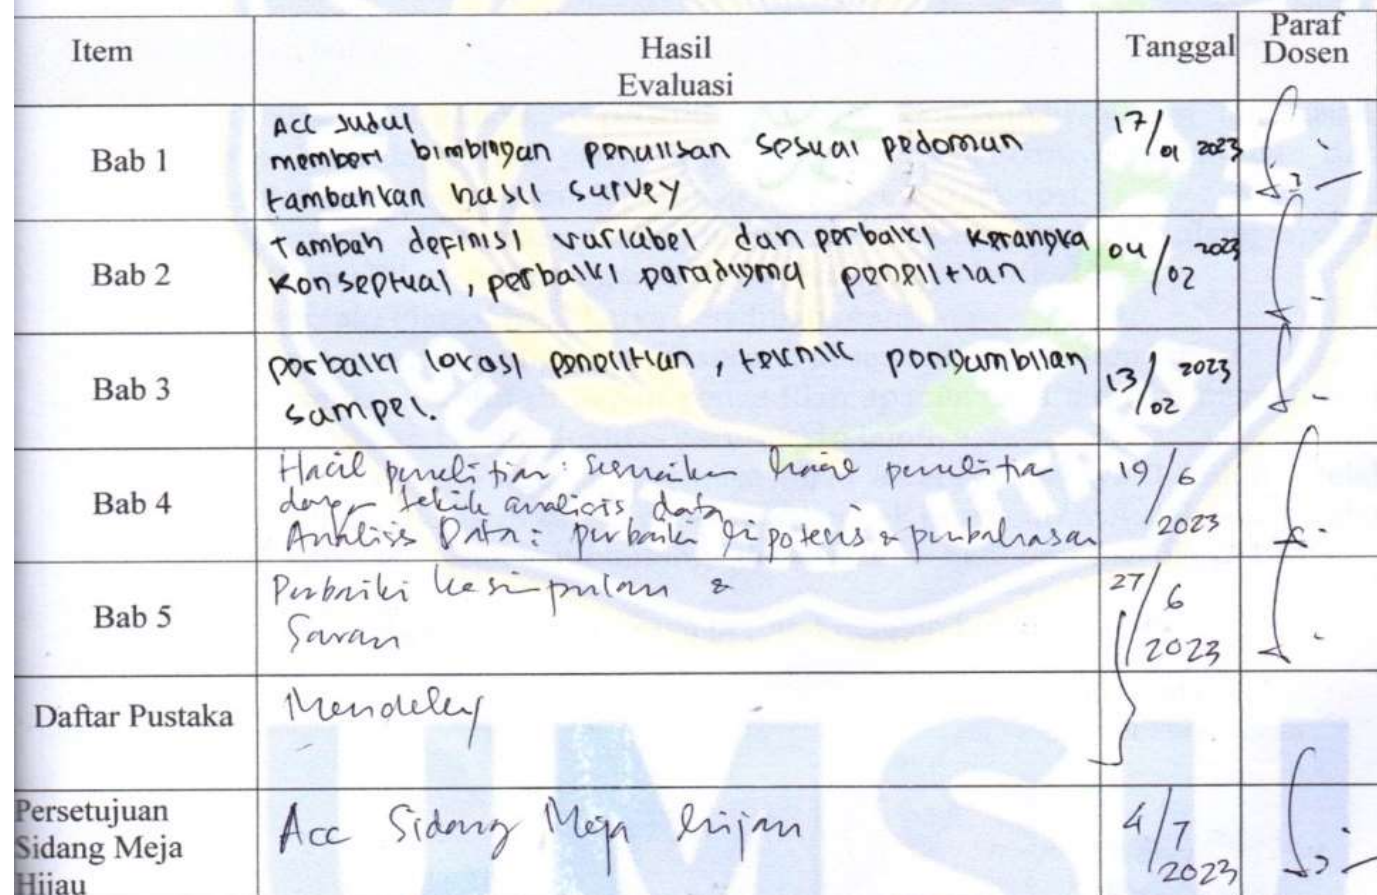 Item Hasil Evaluasi Tanggal Paraf Dosen
Bab 1
Acc Judul
memberi bimbingan penulisan sesuai pedoman
tambahkan hasil survey
17/01 2023
Bab 2
Tambah definisi variabel dan perbaiki kerangka
konseptual, perbaiki paradigma penelitian
04/02 2023
Bab 3
perbaiki lokasi penelitian, teknik pengambilan
sampel.
13/02 2023
Bab 4
Hasil penelitian: sesuaikan hasil penelitian
dengan teknik analisis data
Analisis Data: perbaiki hipotesis & pembahasan
19/6 2023
Bab 5
Perbaiki kesimpulan &
Saran
27/6 2023
Daftar Pustaka
Mendeley
Persetujuan
Sidang Meja
Hijau
Acc Sidang Meja hijau
4/7 2023
SUMATERA UTARA
UMSU